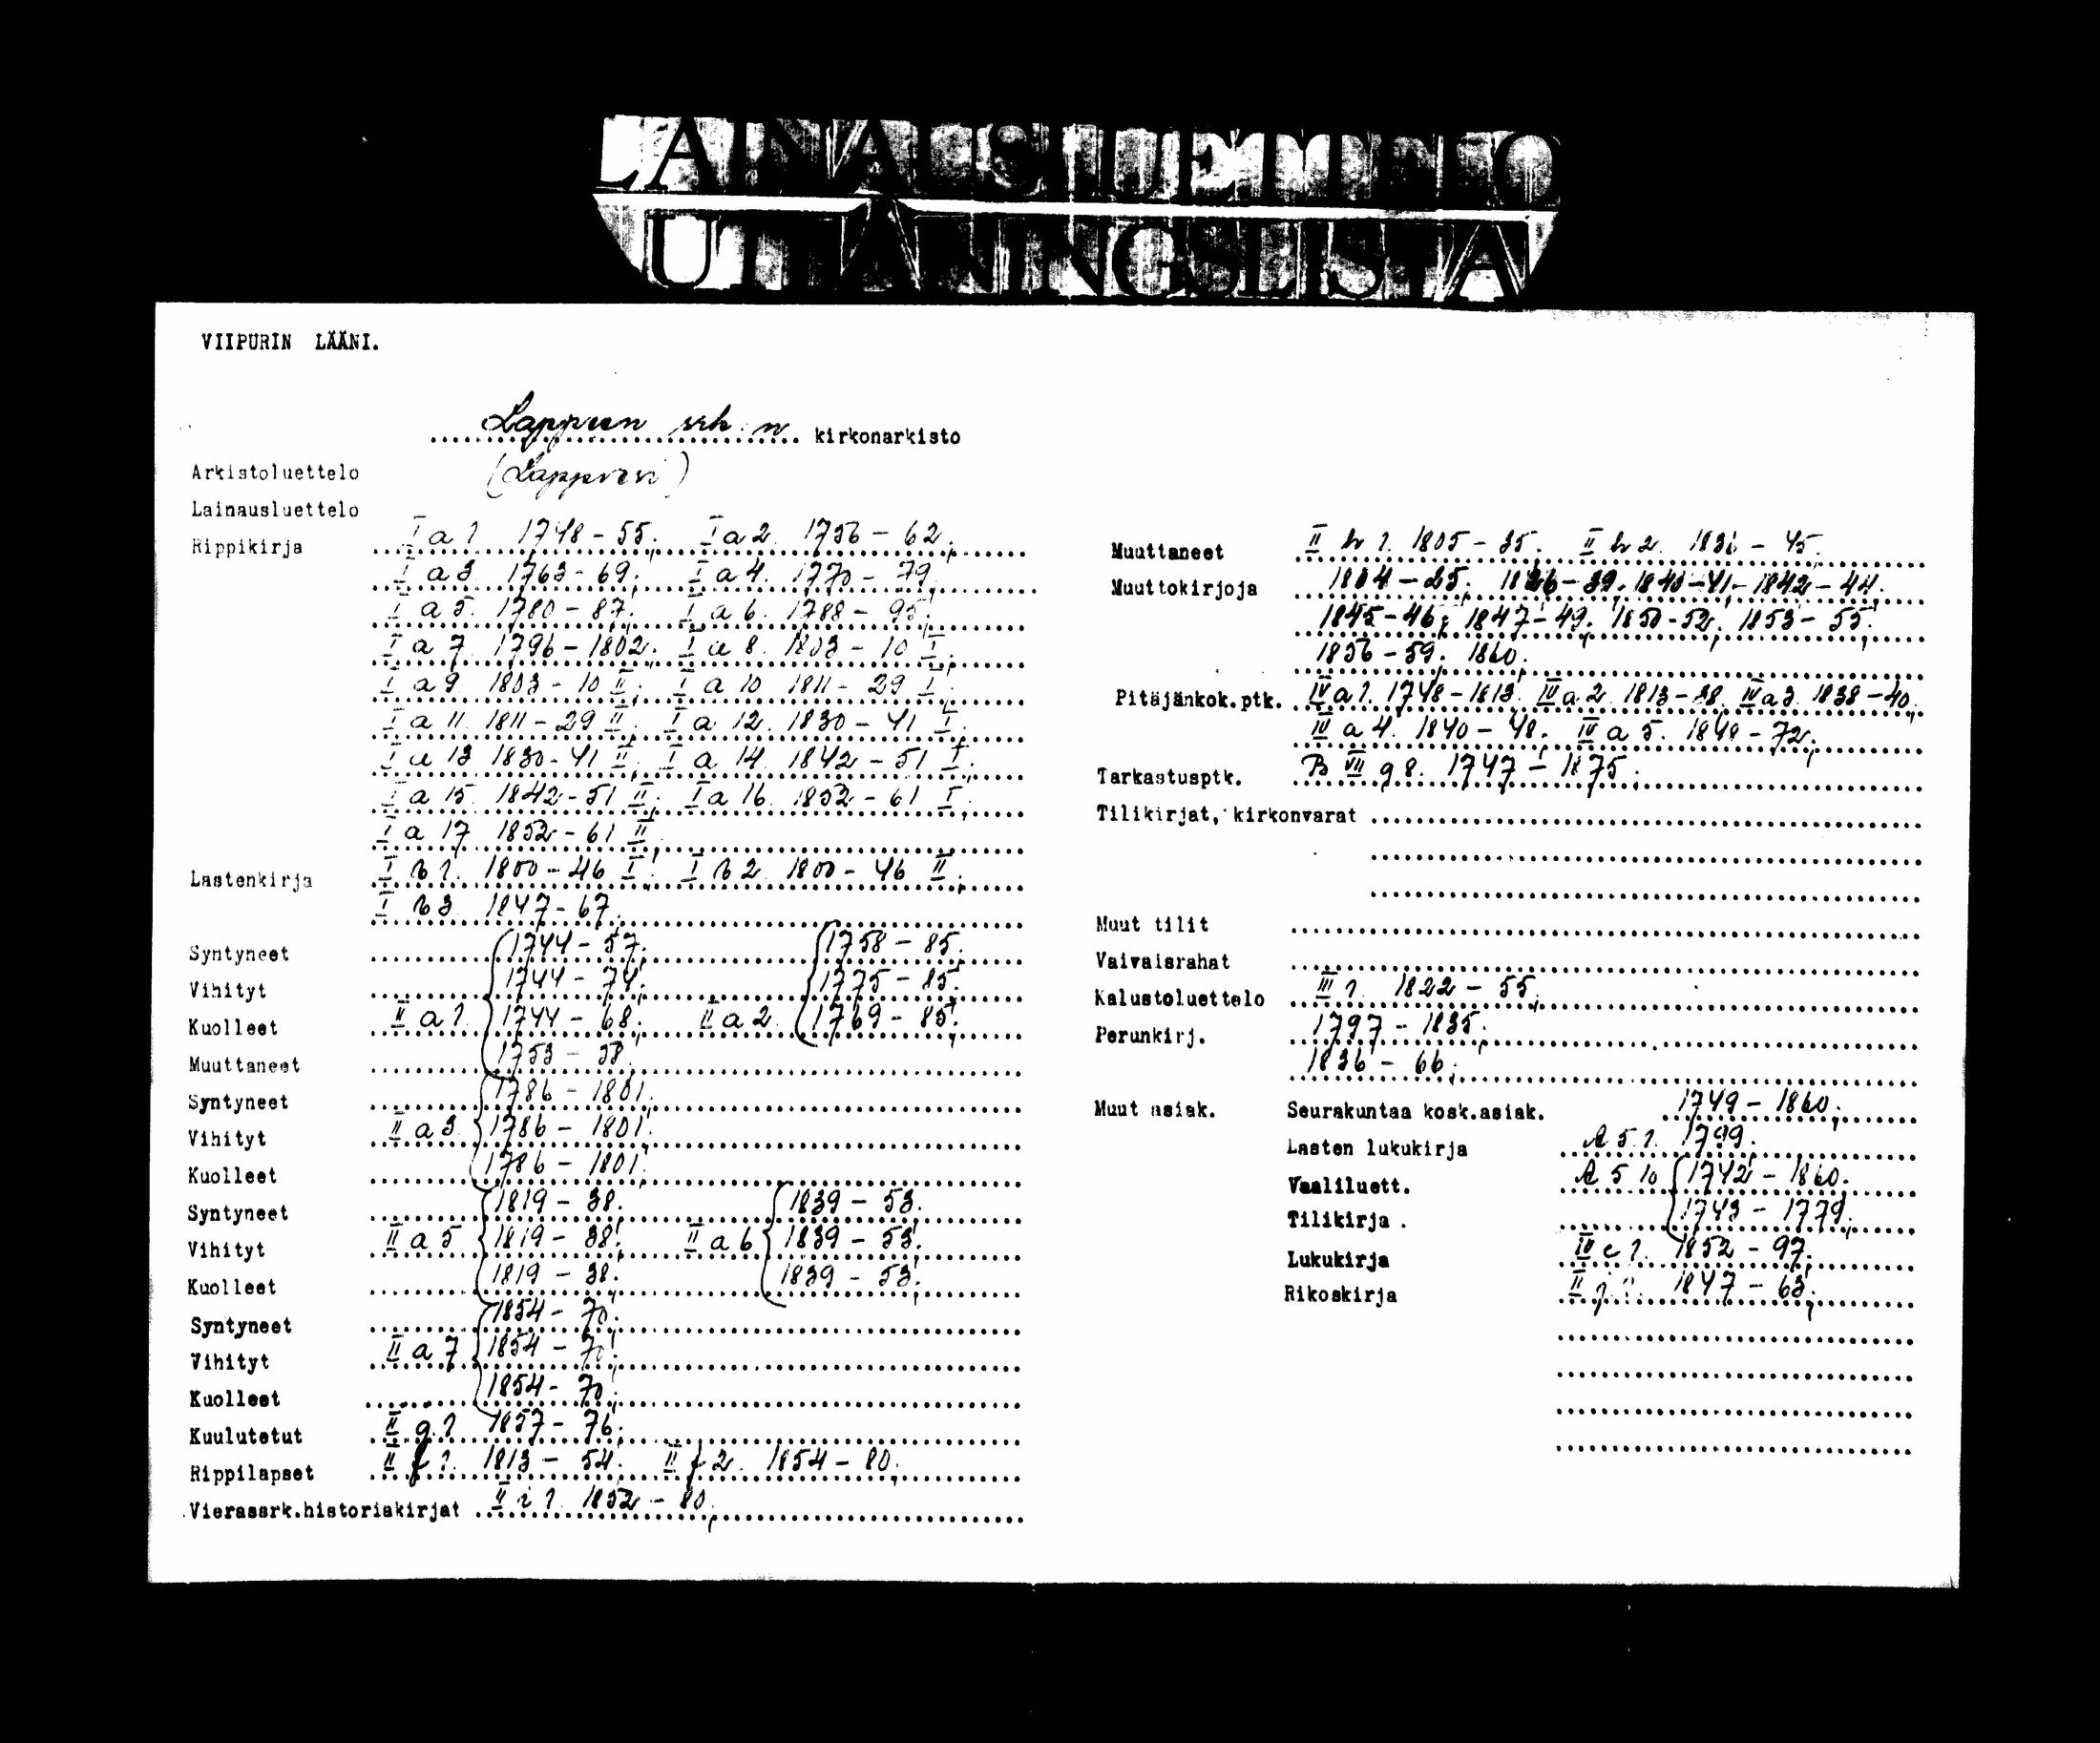 LAINAUSLUETTELO
UTLÅNINGSLISTA
VIIPURIN LÄÄNI.
Lappeen srk:n kirkonarkisto
Arkistoluettelo (Lappvesi)
Lainausluettelo
Rippikirja I a 1 1748-55; I a 2. 1756-62;
I a 3 1763-69; I a 4. 1770-79;
I a 5. 1780-87; I a 6. 1788-95;
I a 7. 1796-1802; I a 8. 1803-10 I;
I a 9. 1803-10 II; I a 10 1811-29 I;
I a 11. 1811-29 II; I a 12. 1830-41 I;
I a 13 1830-41 II; I a 14. 1842-51 I;
I a 15. 1842-51 II; I a 16. 1852-61 I;
I a 17 1852-61 II
Lastenkirja I b 1. 1800-46 I; I b 2. 1800-46 II;
I b 3. 1847-67;
Syntyneet 1744-57; 1758-85;
Vihityt 1744-74; 1775-85;
Kuolleet II a 1. 1744-68; II a 2. 1769-85;
Muuttaneet 1753-
Syntyneet 1786-1801;
Vihityt II a 3 1786-1801;
Kuolleet 1786-1801;
Syntyneet 1819-38; 1839-53;
Vihityt II a 5 1819-38; II a 6 1839-53;
Kuolleet 1819-38; 1839-53;
Syntyneet 1854-70;
Vihityt II a 7 1854-70;
Kuolleet 1854-70;
Kuulutetut II g 1 1857-76;
Rippilapset II f 1. 1813-54; II f 2. 1854-80;
Vierassrk.historiakirjat II i 1. 1852-80;
Muuttaneet II b 1. 1805-35; II b 2. 1836-45;
Muuttokirjoja 1804-25; 1826-39; 1840-41; 1842-44;
1845-46; 1847-49; 1850-52; 1853-55;
1856-59; 1860;
Pitäjänkok.ptk. IV a 1. 1748-1813. IV a 2. 1813-38. IV a 3. 1838-40;
IV a 4. 1840-48; IV a 5. 1848-72;
Tarkastusptk. B VII g 8. 1747-1875;
Tilikirjat, kirkonvarat
Muut tilit
Vaivaisrahat
Kalustoluettelo III 1. 1822-55;
Perunkirj. 1797-1835;
1836-66;
Muut asiak. Seurakuntaa kosk.asiak. 1749-1860;
Lasten lukukirja A 5 1. 1799;
Vaaliluett. A 5 10 1742-1860;
Tilikirja. 1743-1779;
Lukukirja III c 1. 1852-97;
Rikoskirja II 1847-63;